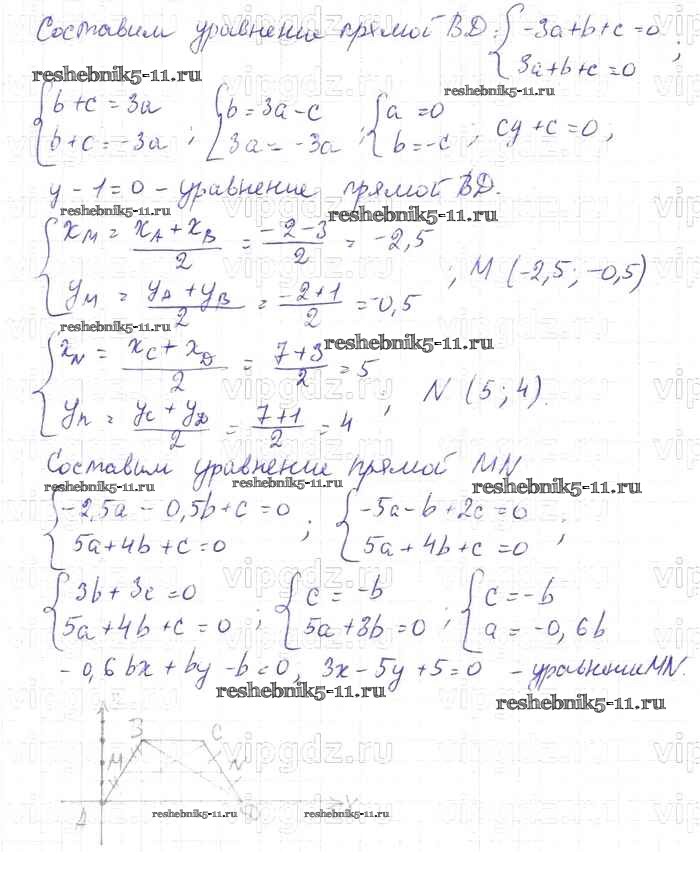 Составим уравнение прямой BD: { -3a+b+c=0
3a+b+c=0 ;
reshebnik5-11.ru
reshebnik5-11.ru
{ b+c=3a
b+c=-3a ; { b=3a-c
3a=-3a ; { a=0
b=-c ; cy+c=0,
y-1=0 - уравнение прямой BD.
reshebnik5-11.ru
reshebnik5-11.ru
{ x_M = (x_A+x_B)/2 = (-2-3)/2 = -2,5
y_M = (y_A+y_B)/2 = (-2+1)/2 = -0,5 ; M (-2,5; -0,5)
reshebnik5-11.ru
reshebnik5-11.ru
{ x_N = (x_C+x_D)/2 = (7+3)/2 = 5
y_n = (y_C+y_D)/2 = (7+1)/2 = 4 ; N (5; 4).
Составим уравнение прямой MN
reshebnik5-11.ru
reshebnik5-11.ru
reshebnik5-11.ru
{ -2,5a-0,5b+c=0
5a+4b+c=0 ; { -5a-b+2c=0
5a+4b+c=0 ;
{ 3b+3c=0
5a+4b+c=0 ; { c=-b
5a+3b=0 ; { c=-b
a=-0,6b
-0,6bx+by-b=0, 3x-5y+5=0 - уравнение MN.
reshebnik5-11.ru
reshebnik5-11.ru
B C
M N
A D
reshebnik5-11.ru
reshebnik5-11.ru
vipgdz.ru